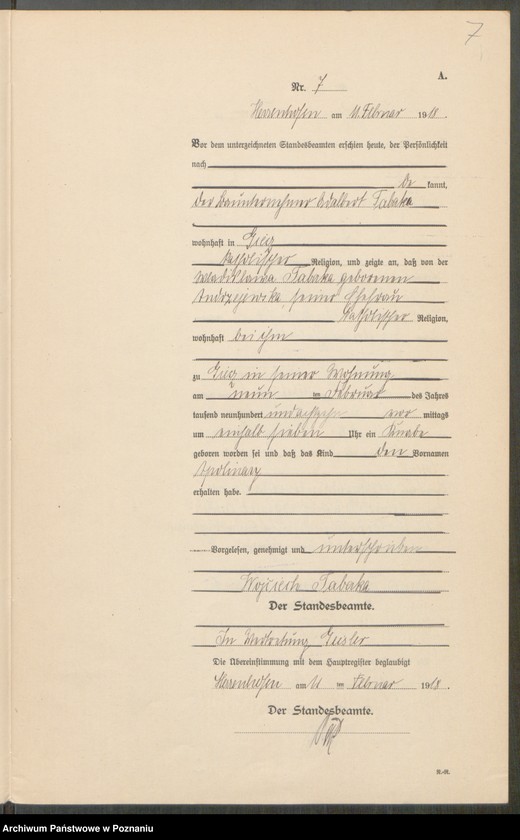 7
A.
Nr. 7
Herrenhofen am 11. Februar 1918.
Vor dem unterzeichneten Standesbeamten erschien heute, der Persönlichkeit
nach
be kannt,
der Bauunternehmer Adalbert Tabaka
wohnhaft in Giecz
katholischer Religion, und zeigte an, daß von der
Wladislawa Tabaka geborenen
Andrzejewska, seiner Ehefrau
katholischer Religion,
wohnhaft bei ihm
zu Giecz in seiner Wohnung
am neun ten Februar des Jahres
tausend neunhundert undachtzehn vor mittags
um einhalb sieben Uhr ein Knabe
geboren worden sei und daß das Kind den Vornamen
Apolinary
erhalten habe.
Vorgelesen, genehmigt und unterschrieben
Wojciech Tabaka
Der Standesbeamte.
In Vertretung Giesler
Die Übereinstimmung mit dem Hauptregister beglaubigt
Herrenhofen am 11 ten Februar 1918.
Der Standesbeamte.
Archiwum Państwowe w Poznaniu